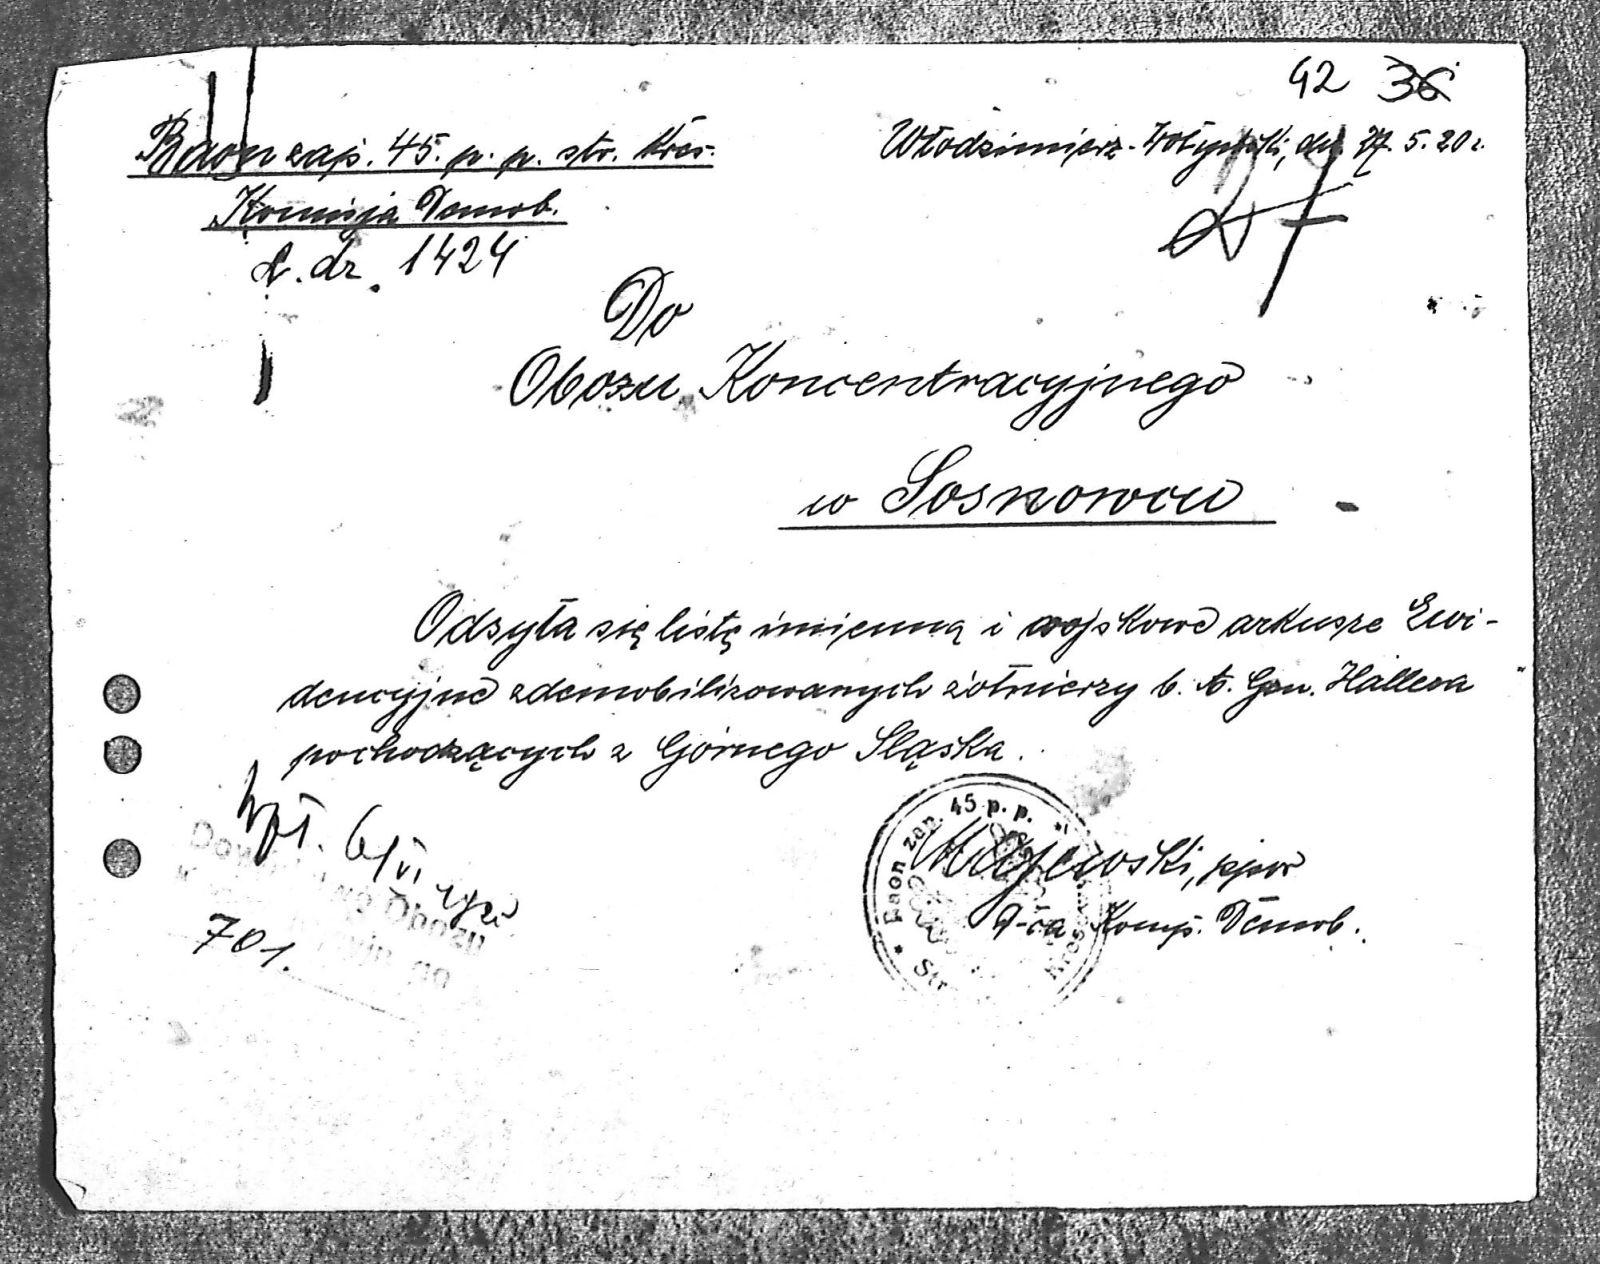 42 36
Baon zap. 45. p. p. str. Kres.
Włodzimierz-Wołyński, dn. 27. 5. 20 r.
Komisja Demob.
L. dz. 1424
Do
Obozu Koncentracyjnego
w Sosnowcu
Odsyła się listę imienną i wojskowe arkusze Ewi-
dencyjne zdemobilizowanych żołnierzy b. A. Gen. Hallera
pochodzących z Górnego Śląska.
wpł. 6/VI 1920
701.
Dowództwo Obozu
* Baon zap. 45 p. p. * Str Kresowych
Majewski, ppor
D-ca Komp. Demob.